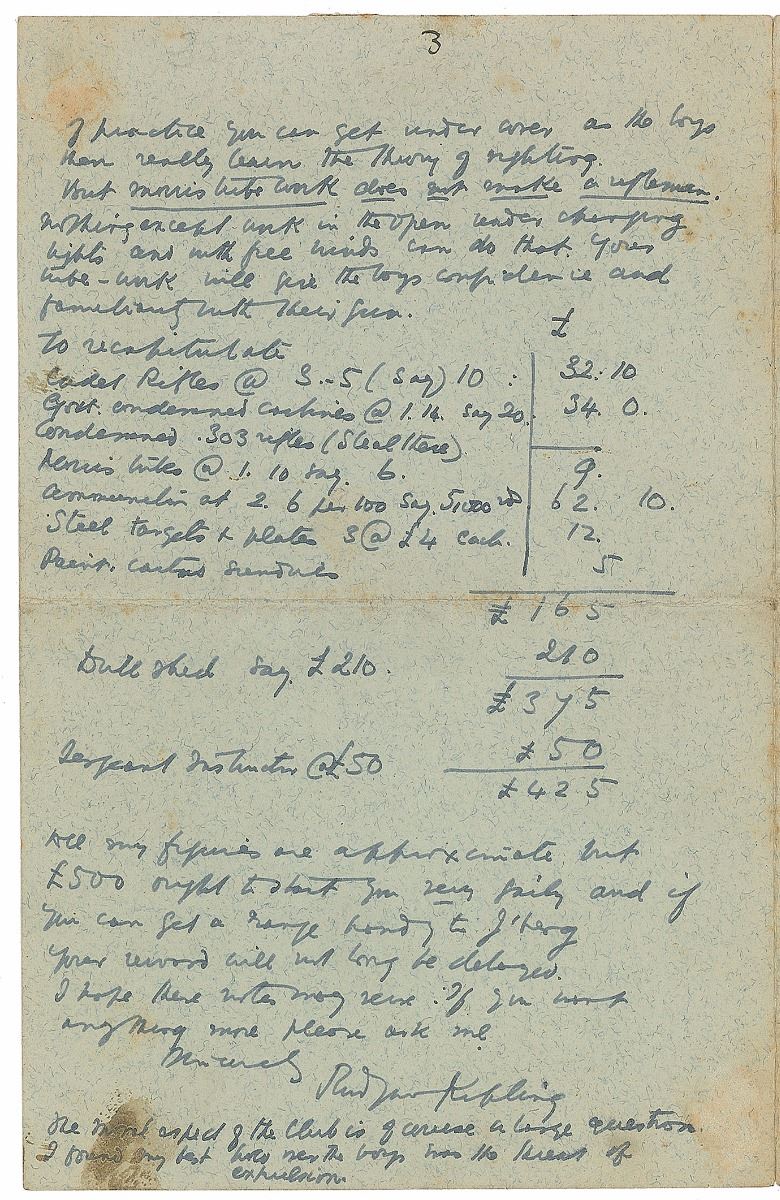 3
of practice you can get under cover as the boys
then really learn the theory of sighting.
But morris tube work does not make a rifleman.
nothing except work in the open under changing
lights and with free winds can do that. Your
tube-work will give the boys confidence and
familiarity with their gun.
£
To recapitulate
Cadet Rifles @ 3..5 (say) 10 : 32. 10
Govt. condemned carbines @ 1.14. say 20. 34 0.
Condemned .303 rifles (Steal these)
Morris tubes @ 1. 10 say. 6. 9.
Ammunition at 2. 6 per 100 say. 5,000 rds 62. 10.
Steel targets & plates 3 @ £4 each. 12.
Paint. cartons sundries 5
£ 165
Drill shed say. £210. 210
£375
Sergeant Instructor @ £50 £50
£425
All my figures are approximate but
£500 ought to start you very fairly and if
you can get a range handy to J'berg
your reward will not long be delayed.
I hope these notes may serve. If you want
anything more please ask me
Sincerely
Rudyard Kipling
The moral aspect of the Club is of course a large question.
I found my best hold over the boys was the threat of
expulsion.